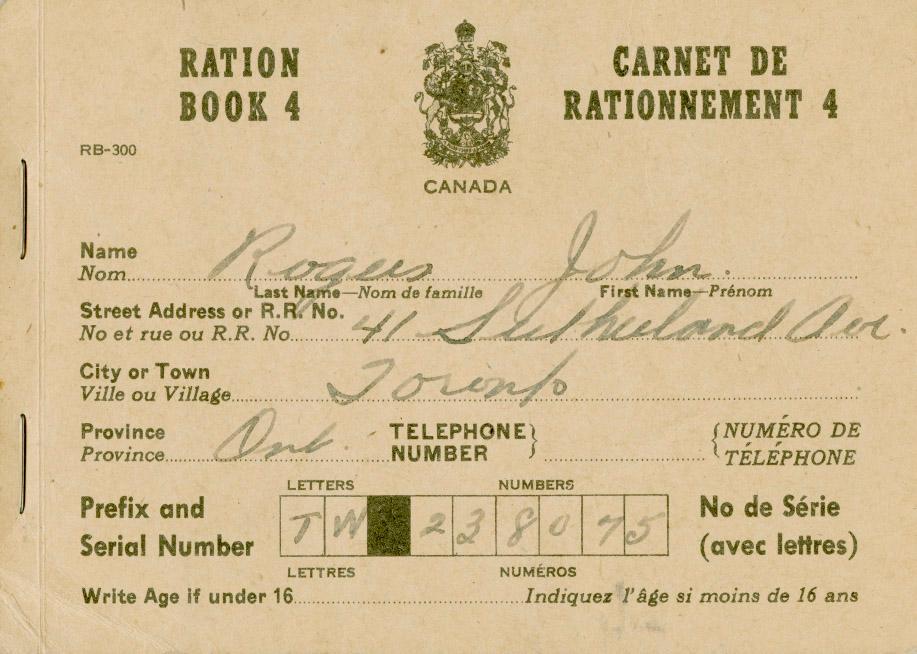 RATION
BOOK 4
CARNET DE
RATIONNEMENT 4
RB-300
CANADA
Name
Nom Rogers John.
Last Name—Nom de famille First Name—Prénom
Street Address or R.R. No.
No et rue ou R.R. No. 41 Sutherland Ave.
City or Town
Ville ou Village Toronto
Province TELEPHONE NUMÉRO DE
Province Ont. NUMBER TÉLÉPHONE
LETTERS NUMBERS
Prefix and No de Série
TW 238075
Serial Number (avec lettres)
LETTRES NUMÉROS
Write Age if under 16 Indiquez l'âge si moins de 16 ans